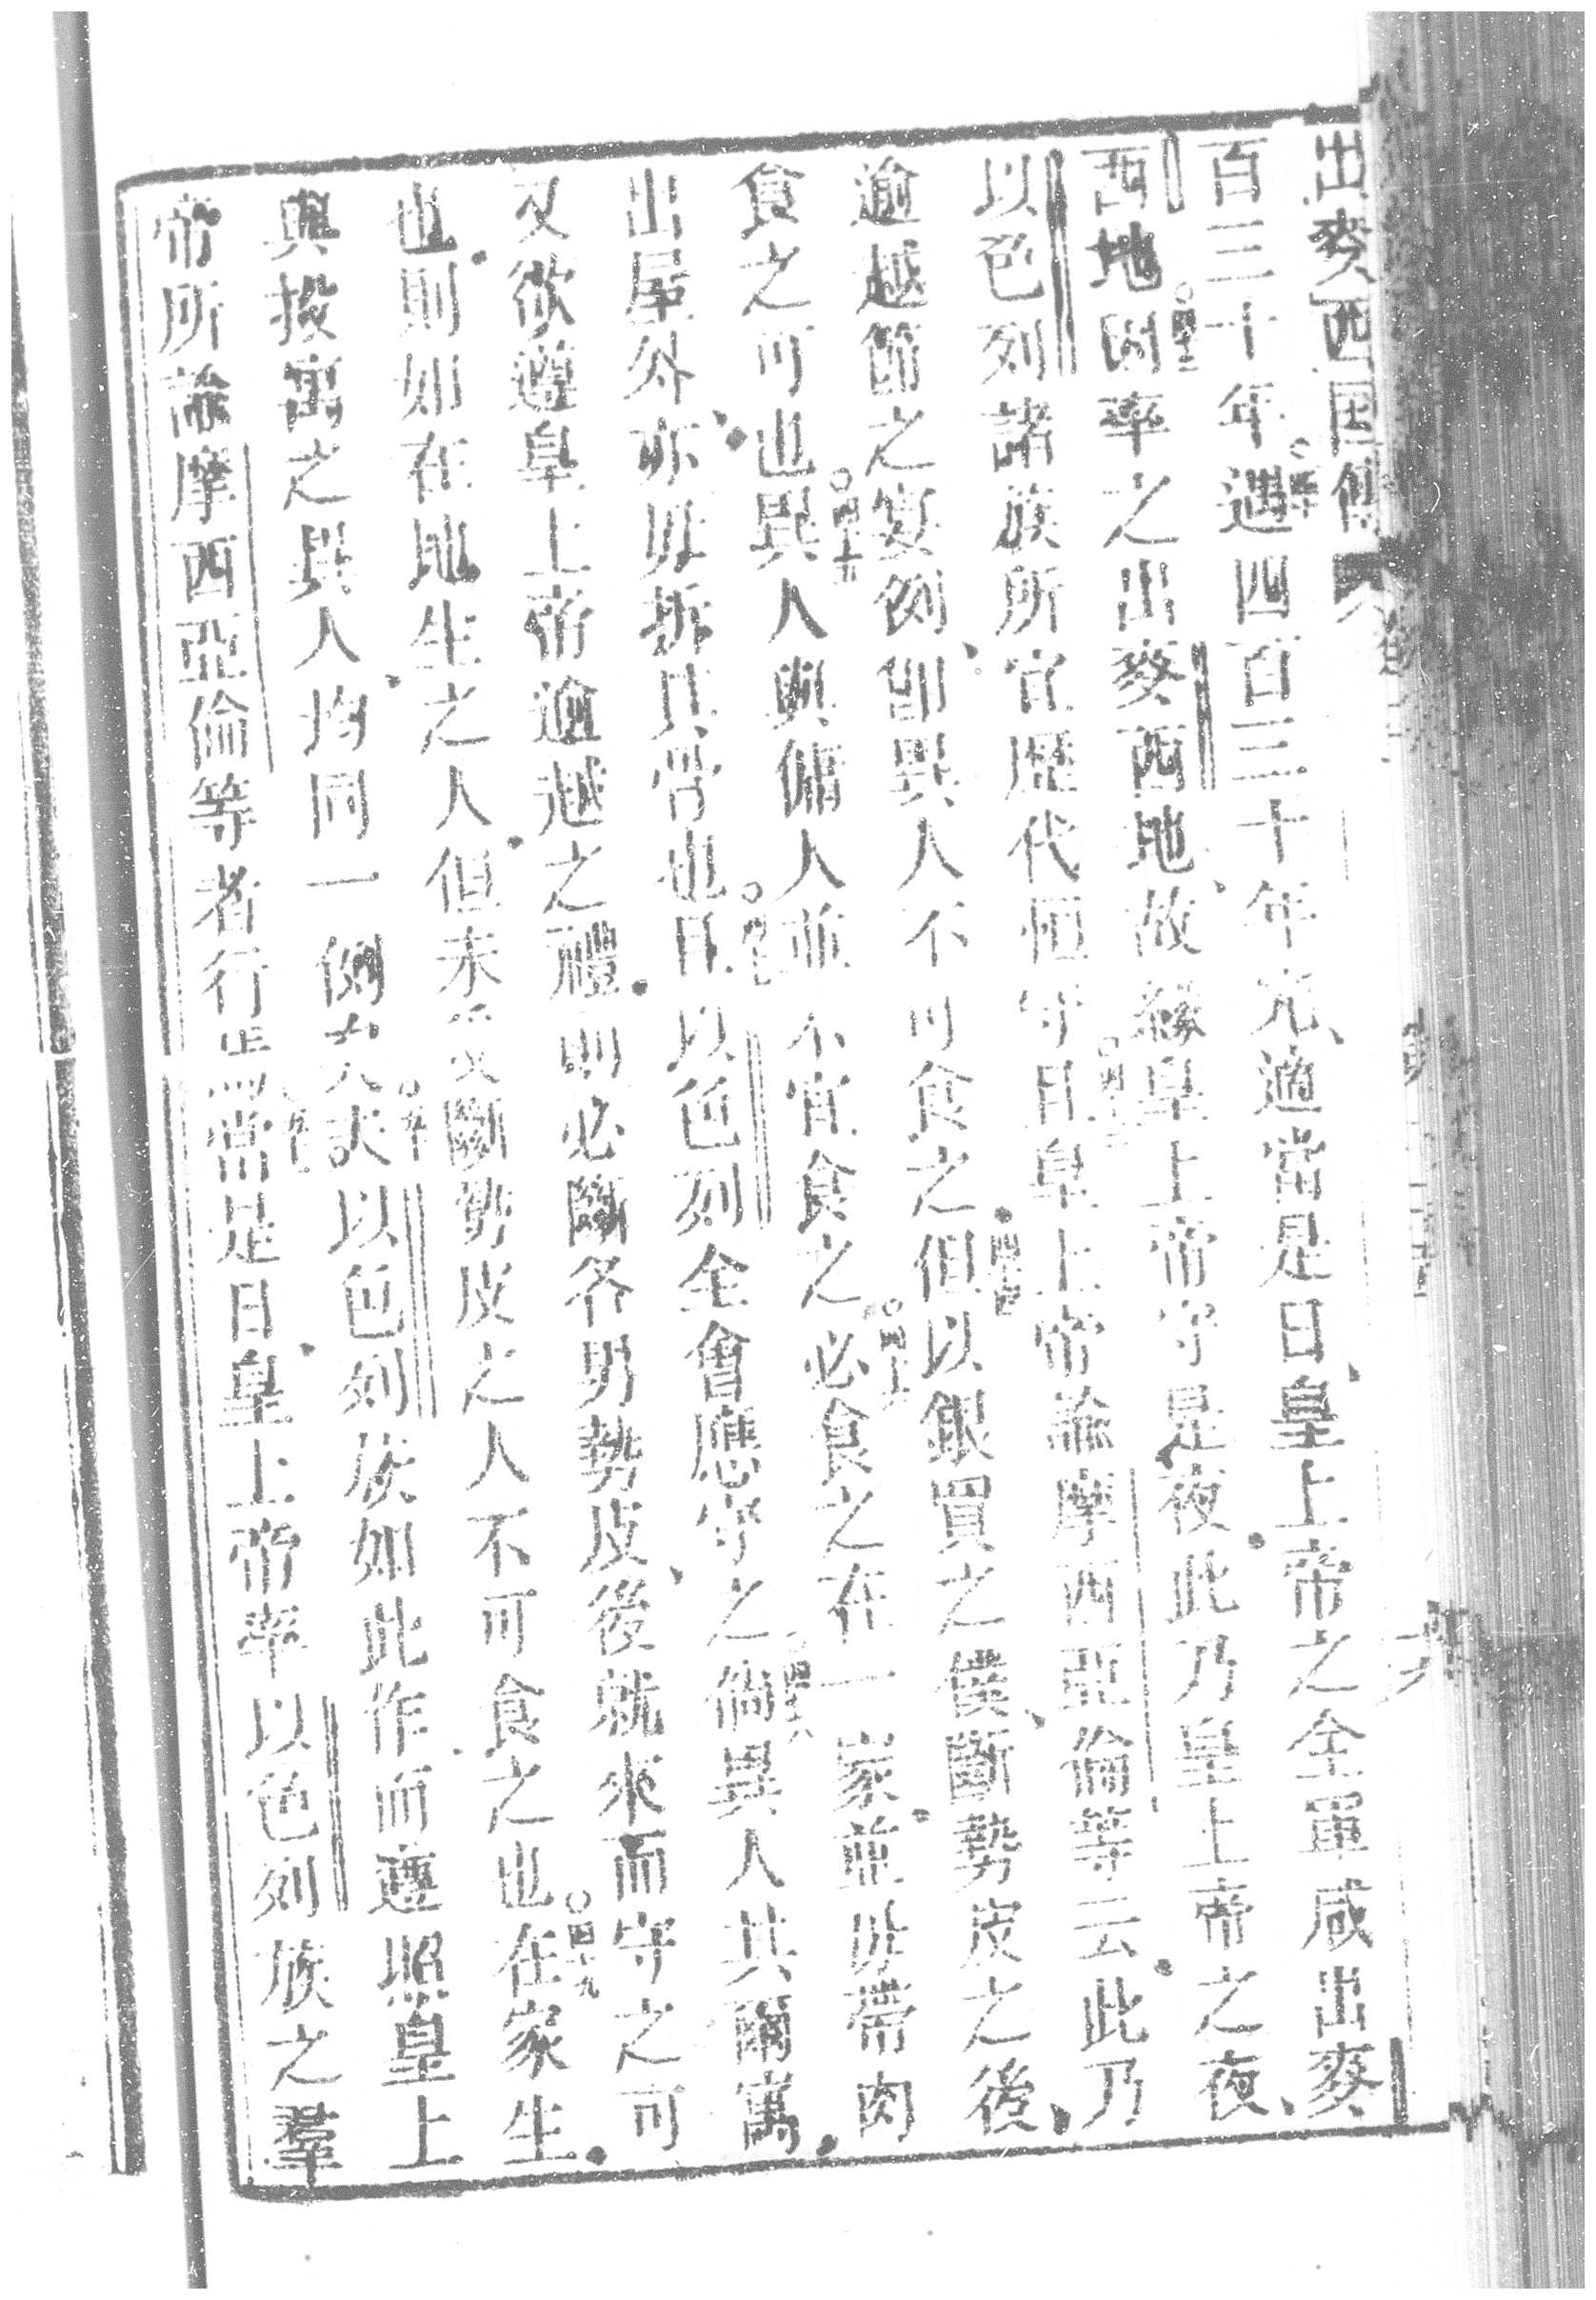 出麥西國傳
百三十年遇四百三十年完、適當是日、皇上帝之全軍咸出麥
西地四二因率之出麥西地、故緣皇上帝守是夜此乃皇上帝之夜、
以色列諸族所宜歷代恒守四三且皇上帝諭摩西亞倫等云此乃
逾越節之宴例、卽異人不可食之四四但以銀買之僕、斷勢皮之後、
食之可也四五異人與傭人並不宜食之四六必食之在一家並毋帶肉
出屋外、亦毋拆其骨也四七且以色列全會應守之四八倘異人共爾寓
又欲遵皇上帝逾越之禮則必斷各男勢皮、後就來而守之可
也則如在地生之人但未斷勢皮之人不可食之也四九在家生
與投寓之異人、均同一例矣以色列族如此作而遵照皇上
帝所諭摩西亞倫等者行當是日、皇上帝率以色列族之羣